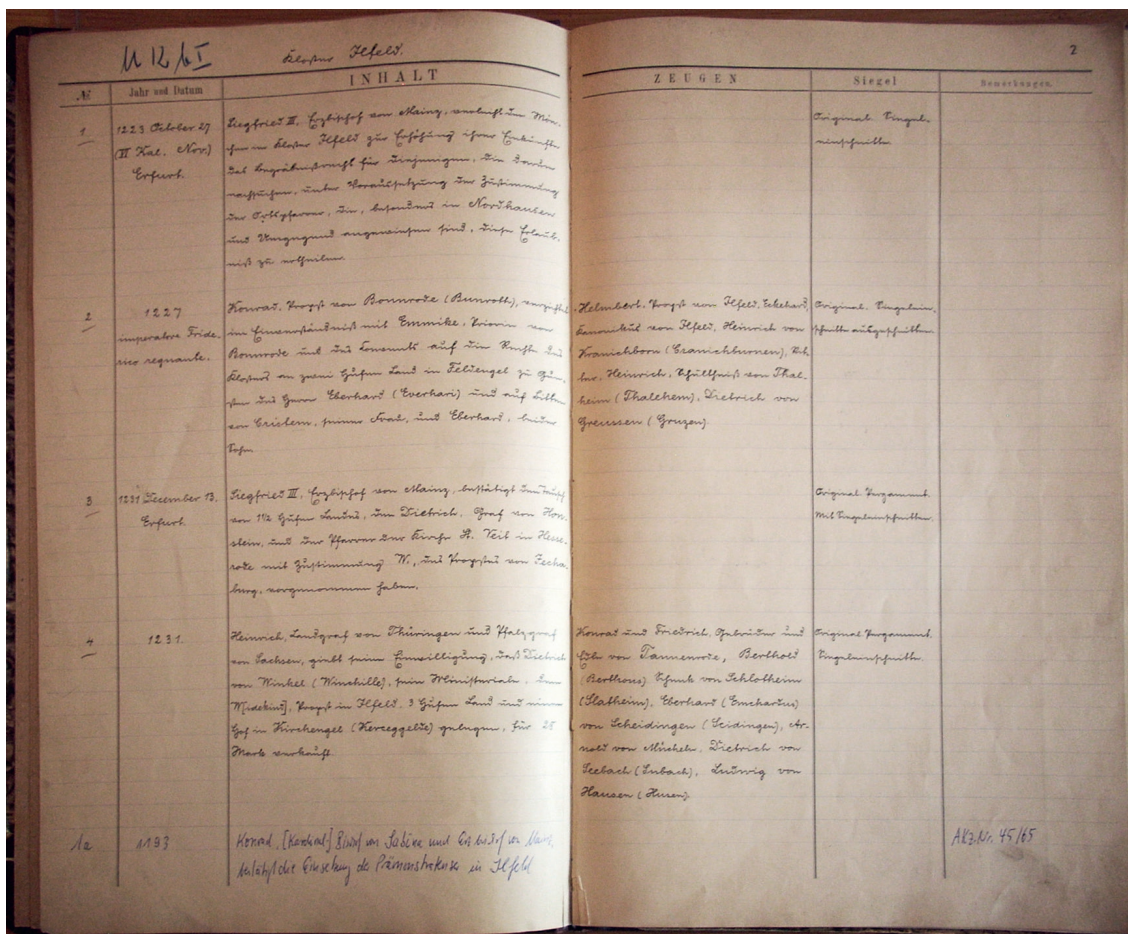 U 12 b I
Kloster Ilfeld.
2
№
Jahr und Datum
INHALT
ZEUGEN
Siegel
Bemerkungen.
1
1223 October 27
(VI Kal. Nov.)
Erfurt.
Siegfried II, Erzbischof von Mainz, verleiht den Mön-
chen im Kloster Ilfeld zur Erhöhung ihrer Einkünfte
das Begräbnißrecht für diejenigen, die darum
nachsuchen, unter Voraussetzung der Zustimmung
der Ortspfarrer, die, besonders in Nordhausen
und Umgegend angewiesen sind, diese Erlaub-
niß zu ertheilen.
Original. Siegel-
einschnitte.
2
1227
imperatore Fride-
rico regnante.
Konrad, Propst von Bonnrode (Bunroth), verzichtet
im Einverständniß mit Emmike, Priorin von
Bonnrode und des Convents auf die Rechte des
Klosters an zwei Hufen Land in Feldengel zu Gun-
sten des Herrn Eberhard (Everhari) und auf Bitten
von Cristern, seiner Frau, und Eberhard, beider
Sohn.
Helmbert, Propst von Ilfeld, Eckehard,
Kanonikus von Ilfeld, Heinrich von
Kranichborn (Cranichburnen), Rit-
ter, Heinrich, Schultheiß von Thal-
heim (Thaleheim), Dietrich von
Greussen (Gruzen).
Original. Siegelein-
schnitte ausgeschnitten.
3
1231 December 13.
Erfurt.
Siegfried III, Erzbischof von Mainz, bestätigt den Tausch
von 1½ Hufen Landes, den Dietrich, Graf von Hon-
stein, und der Pfarrer der Kirche St. Veit in Hesse-
rode mit Zustimmung W., des Propstes von Jecha-
burg, vorgenommen haben.
Original. Pergament.
Mit Siegeleinschnitten.
4
1231.
Heinrich, Landgraf von Thüringen und Pfalzgraf
von Sachsen, giebt seine Einwilligung, daß Dietrich
von Winkel (Winchille), sein Ministeriale, dem
W[idekind], Propst in Ilfeld, 3 Hufen Land und einen
Hof in Kirchengel (Kerceggelde) gelegen, für 28
Mark verkauft.
Konrad und Friedrich, Gebrüder und
Edle von Tannenrode, Berthold
(Berthous) Schenk von Schlotheim
(Slatheim), Eberhard (Emchardus)
von Scheidingen (Scidingen), Ar-
nold von Mücheln, Dietrich von
Seebach (Sebach), Ludwig von
Hausen (Husen).
Original Pergament.
Siegeleinschnitte.
1a
1193
Konrad, [Kardinal] Bischof von Sabina und Erzbischof von Mainz,
bestätigt die Einsetzung der Prämonstratenser in Ilfeld
Akz. Nr. 45/65